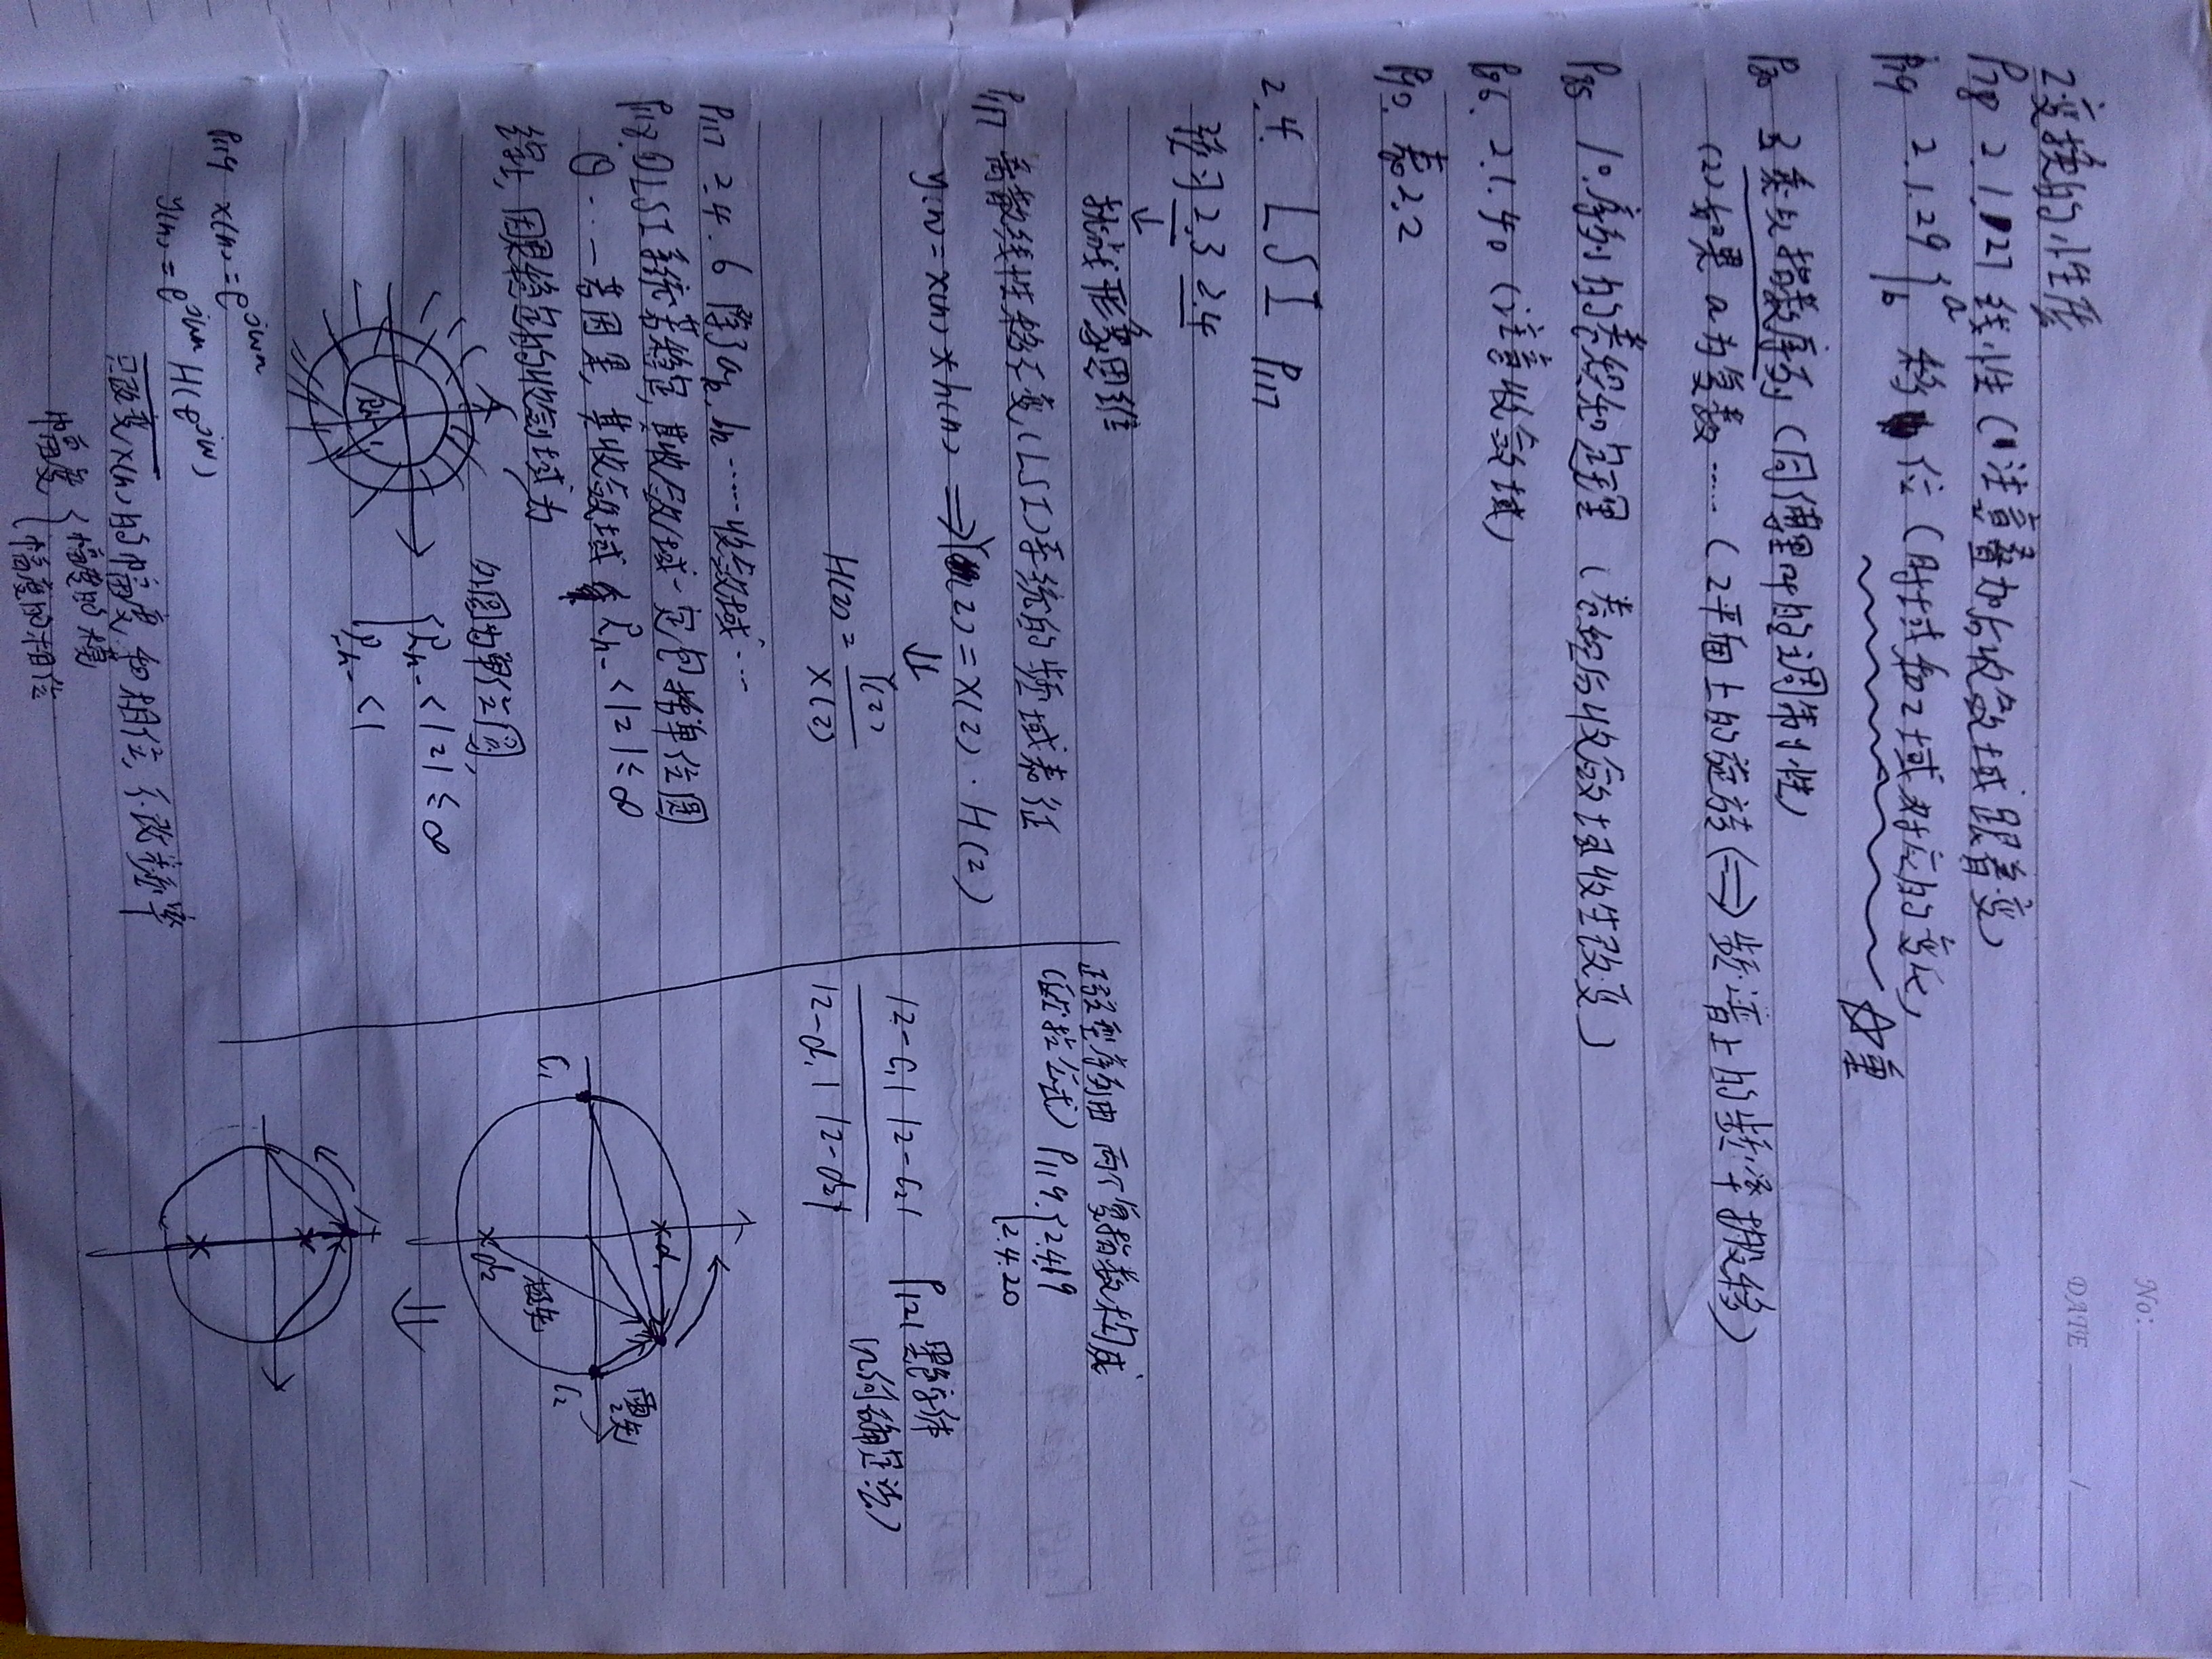 No:
DATE
Z变换的性质
P78 2.1.27 线性(注意叠加后收敛域跟着变)
P79 2.1.29 {a b 移位(时域和z域对应的变化)
☆重
P80 3 乘以指数序列(同傅里叶的调制性)
(2)如果a为复数……(z平面上的旋转⟺频谱上的频率搬移)
P85 10.序列的卷积和定理(卷积后收敛域收生改变)
P86. 2.1.40(注意收敛域)
P90. 表2.2
2.4. LSI P117
预习2.3 2.4
↓
抽象形象思维
P117 离散线性移不变(LSI)系统的频域表征
y(n)=x(n)*h(n) ⟹ Y(z)=X(z)·H(z)
⇓
H(z)=Y(z)/X(z)
P117 2.4.6 除了ak,bk……收敛域……
P118.①LSI系统若稳定,其收敛域一定包括单位圆
②……若因果,其收敛域 Rh-<|z|≤∞
综上,因果稳定的收敛域为
外圆为单位圆,
{Rh-<|z|≤∞
Rh-<1
Rh-
P119 x(n)=e^jωn
y(n)=e^jωn H(e^jω)
只改变x(n)的幅度和相位,不改频率
幅度{幅度的模
幅度的相位
正弦型序列由两个复指数构成
(欧拉公式) P119.{2.4.19
2.4.20
|z-c1||z-c2|
|z-d1||z-d2|
P121 黑体
(几何确定法)
C1
d1
d2
极矢
C2
零矢
⇓